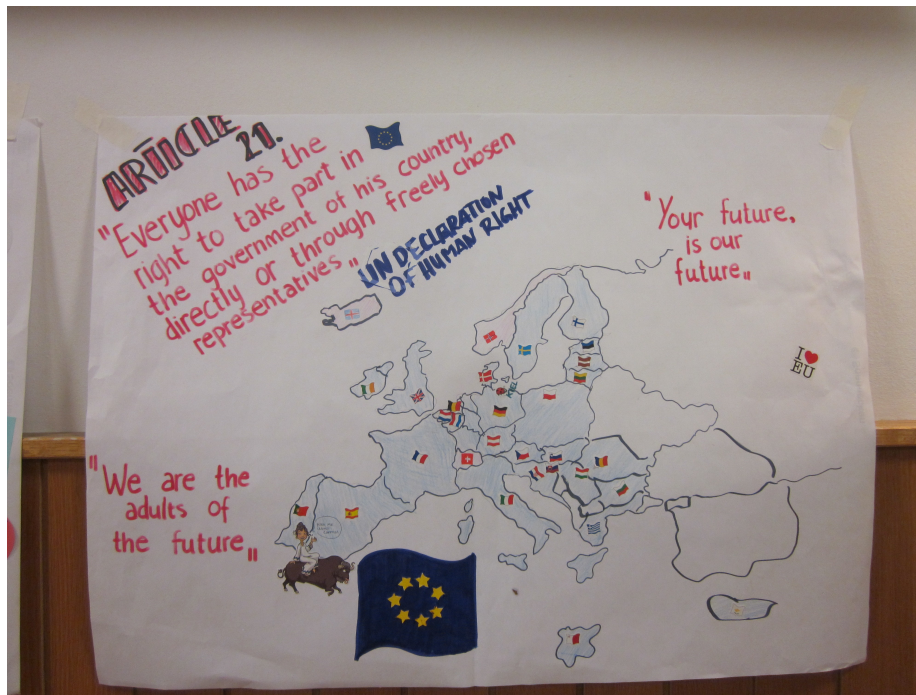 ARTICLE
21.
"Everyone has the
right to take part in
the government of his country,
directly or through freely chosen
representatives"
UN DECLARATION
OF HUMAN RIGHT
"Your future,
is our
future"
I ❤
EU
"We are the
adults of
the future"